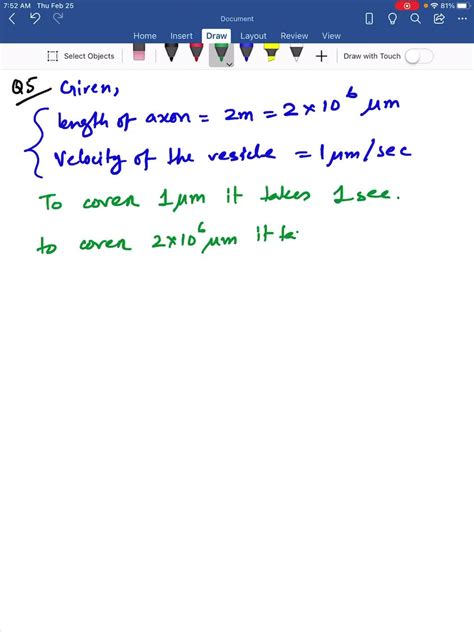 7:52 AM Thu Feb 25
81%
Document
Home Insert Draw Layout Review View
Select Objects
Draw with Touch
Q5 Given,
length of axon = 2m = 2 × 10⁶ μm
Velocity of the vesicle = 1 μm/sec
To cover 1 μm it takes 1 sec.
to cover 2×10⁶ μm it ta